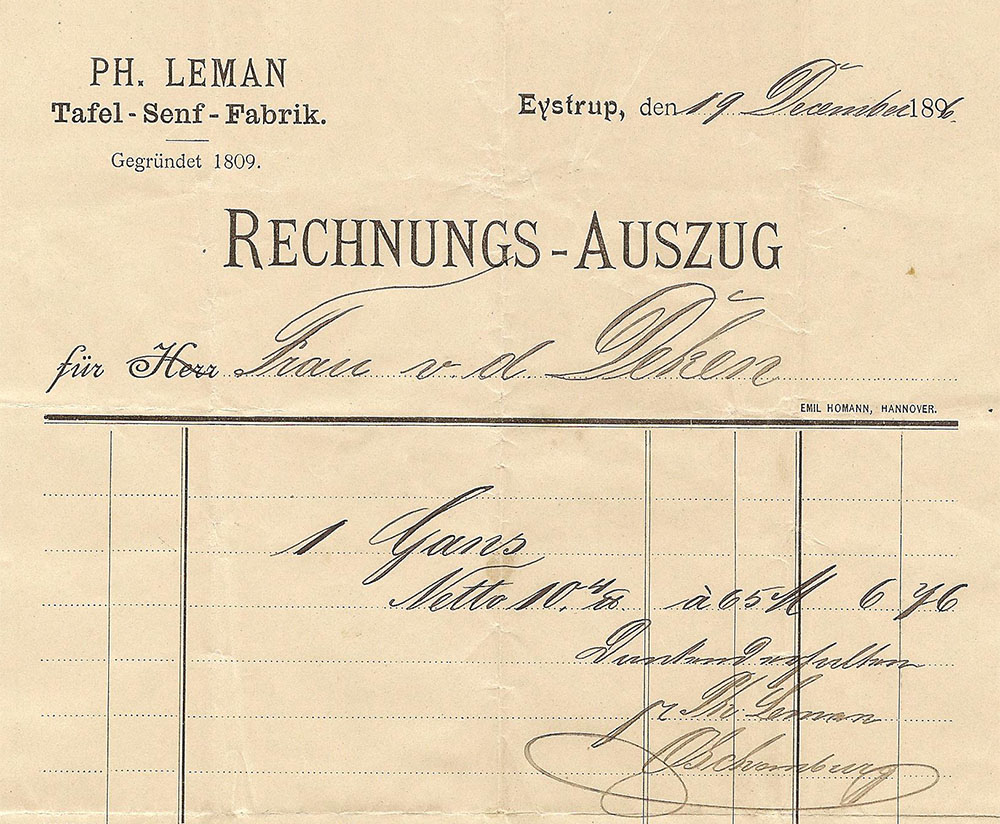 PH. LEMAN
Tafel-Senf-Fabrik.
Gegründet 1809.
Eystrup, den 19 December 1896.
RECHNUNGS-AUSZUG
für Herr Frau v. d. Deken
EMIL HOMANN, HANNOVER.
1 Gans
Netto 10. à 65 6 76
Dankend erhalten
pr Ph. Leman